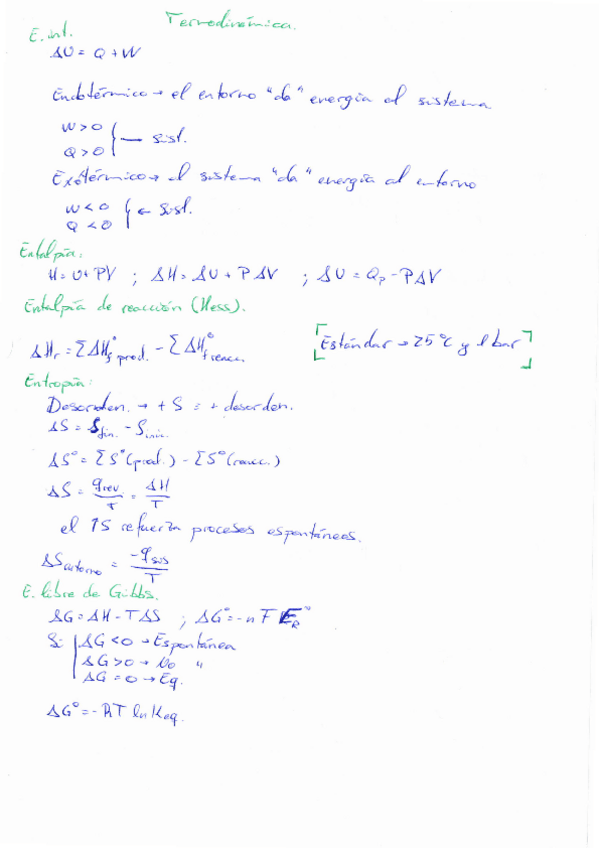 Termodinámica.
E. int.
ΔU = Q + W
Endotérmico → el entorno "da" energía al sistema
W > 0
Q > 0 } — sist.
Exotérmico → el sistema "da" energía al entorno
W < 0
Q < 0 } ← sist.
Entalpía:
H = U + PV ; ΔH = ΔU + PΔV ; ΔU = Qp - PΔV
Entalpía de reacción (Hess).
ΔHr = ΣΔHf° prod. - ΣΔHf° reacc.
[Estándar → 25°C y 1 bar]
Entropía:
Desorden. → + S = + desorden.
ΔS = Sfin. - Sinic.
ΔS° = ΣS°(prod.) - ΣS°(reacc.)
ΔS = qrev/T = ΔH/T
el ↑S refuerza procesos espontáneos.
ΔSentorno = -qsis/T
E. libre de Gibbs.
ΔG = ΔH - TΔS ; ΔG° = -nFER°
Si | ΔG < 0 → Espontánea
ΔG > 0 → No "
ΔG = 0 → Eq.
ΔG° = -RT ln Keq.